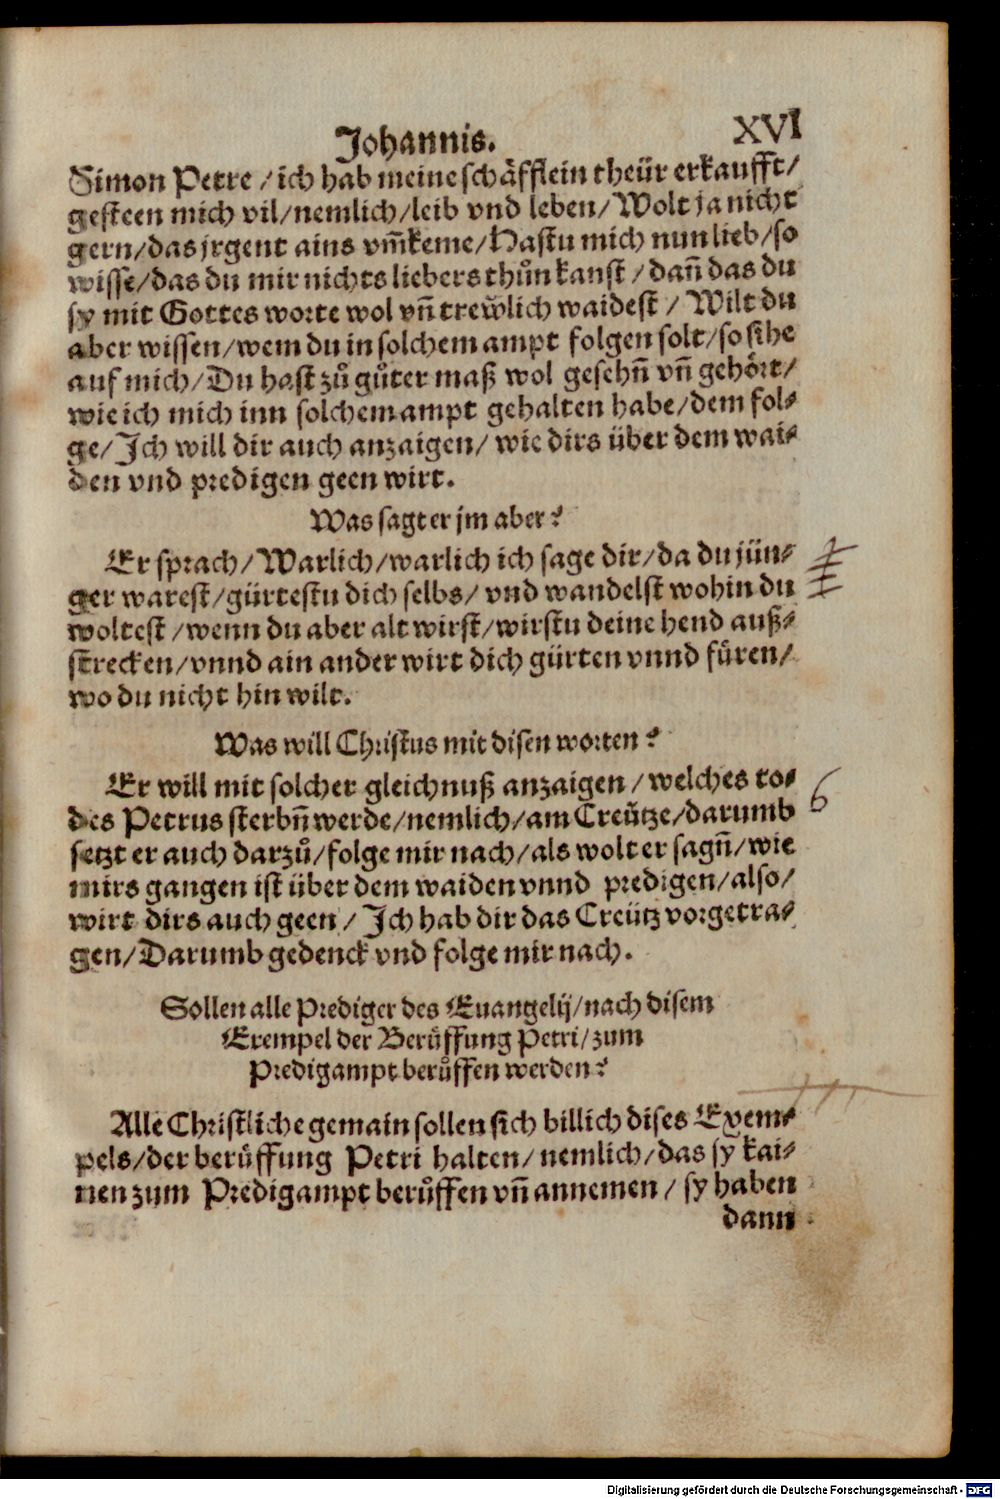 Johannis. XVI
Simon Petre / ich hab meine schäfflein theür erkaufft/
gesteen mich vil/nemlich/leib vnd leben/Wolt ja nicht
gern/das jrgent ains vm̃keme/Hastu mich nun lieb/so
wisse/das du mir nichts liebers thůn kanst / dañ das du
sy mit Gottes worte wol vñ trewlich waidest / Wilt du
aber wissen/wem du in solchem ampt folgen solt/so sihe
auf mich/Du hast zů gůter maß wol gesehñ vñ gehört/
wie ich mich inn solchem ampt gehalten habe/dem fol⸗
ge/Ich will dir auch anzaigen/ wie dirs über dem wai⸗
den vnd predigen geen wirt.
Was sagt er jm aber?
Er sprach/Warlich/warlich ich sage dir/da du jün⸗
ger warest/gürtestu dich selbs/ vnd wandelst wohin du
woltest /wenn du aber alt wirst/wirstu deine hend auß⸗
strecken/vnnd ain ander wirt dich gürten vnnd füren/
wo du nicht hin wilt.
Was will Christus mit disen worten?
Er will mit solcher gleichnuß anzaigen / welches to⸗
des Petrus sterbñ werde/nemlich/am Creütze/darumb
setzt er auch darzů/folge mir nach/als wolt er sagñ/wie
mirs gangen ist über dem waiden vnnd predigen/also/
wirt dirs auch geen / Ich hab dir das Creütz vorgetra⸗
gen/Darumb gedenck vnd folge mir nach.
Sollen alle Prediger des Euangelij/nach disem
Exempel der Berůffung Petri/zum
Predigampt berůffen werden?
Alle Christliche gemain sollen sich billich dises Exem⸗
pels/der berůffung Petri halten/nemlich/das sy kai⸗
nen zum Predigampt berůffen vñ annemen / sy haben
dann
Digitalisierung gefördert durch die Deutsche Forschungsgemeinschaft - DFG